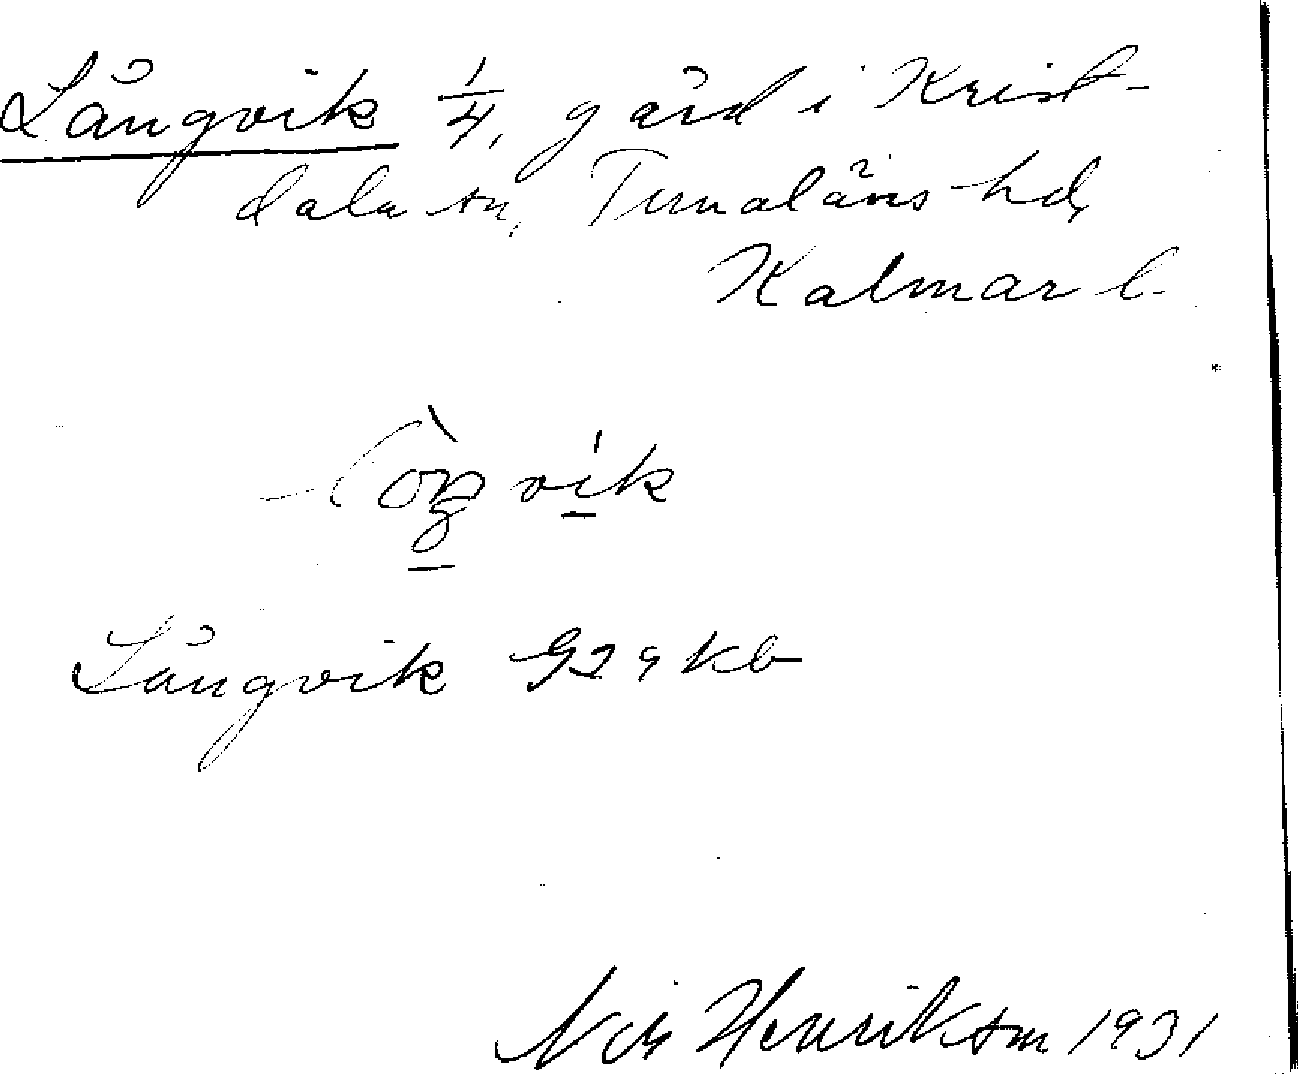 Långvik 1/4, gård i Krist-
dala sn, Tunaläns hd,
Kalmar l.
Långvik 929 kb
Nils Henriksson 1931